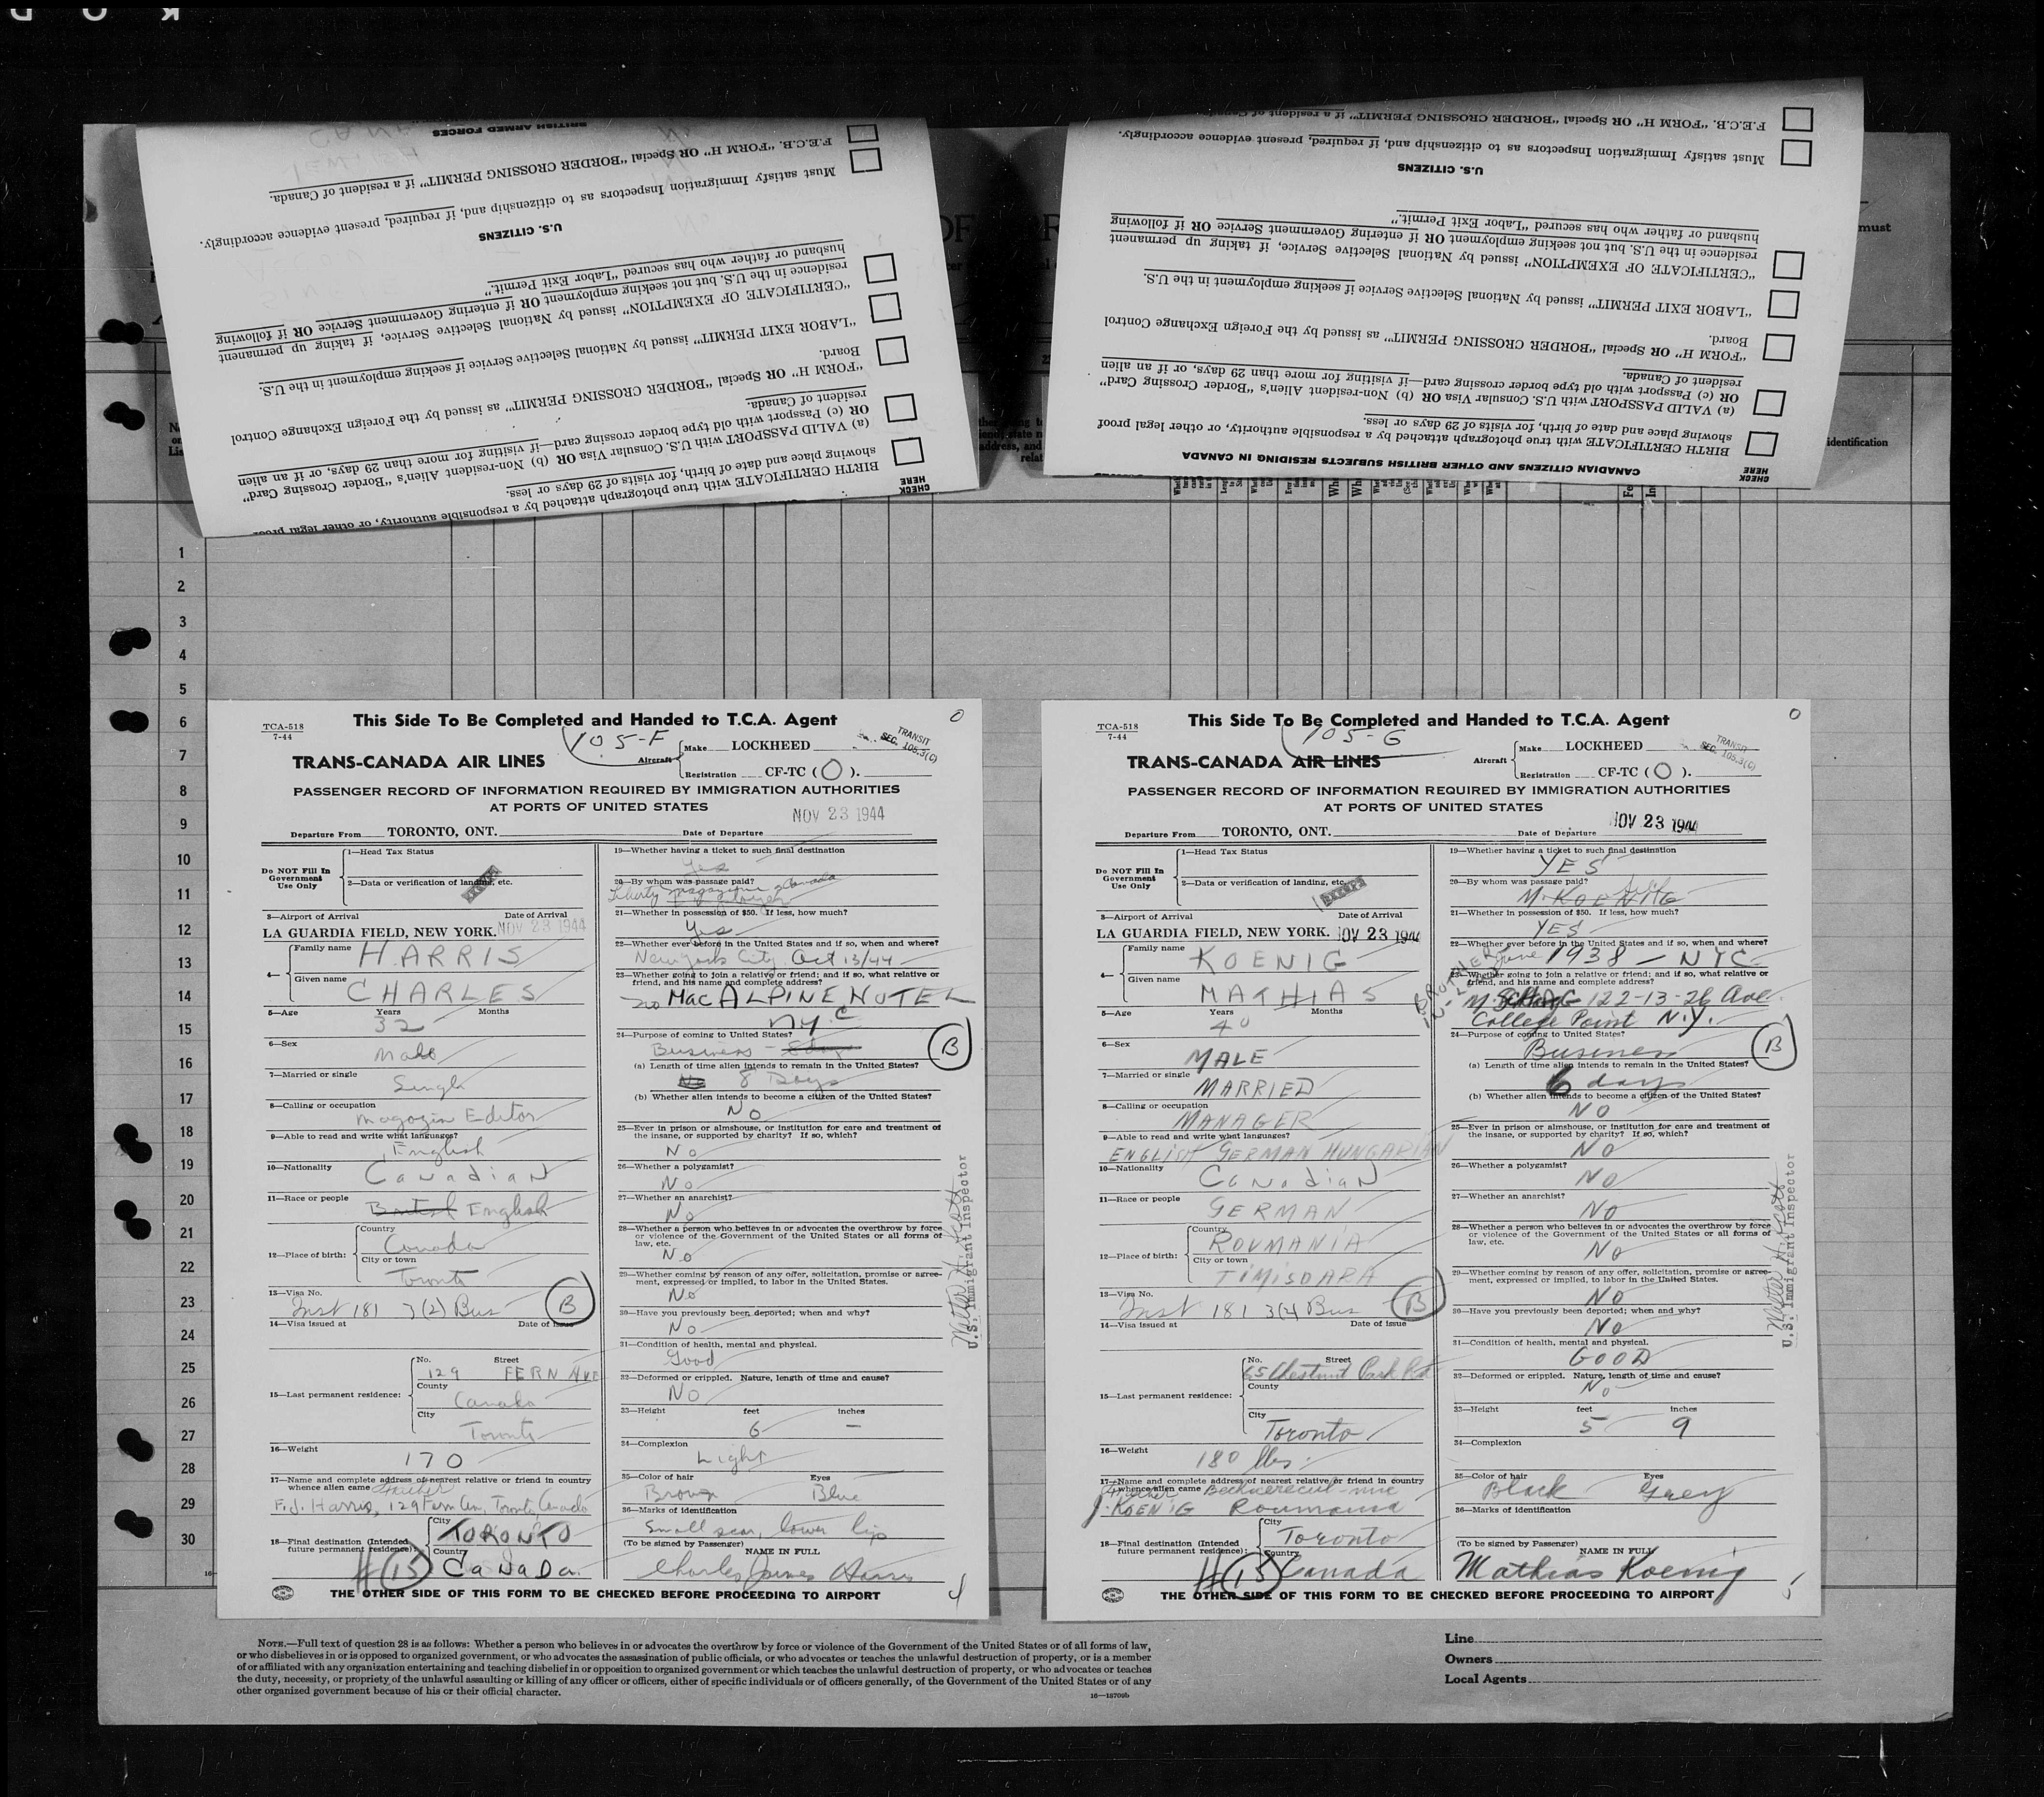 K O D
CHECK HERE
BIRTH CERTIFICATE with true photograph attached by a responsible authority, or other legal proof
showing place and date of birth, for visits of 29 days or less.
(a) VALID PASSPORT with U.S. Consular Visa OR (b) Non-resident Alien's "Border Crossing Card"
OR (c) Passport with old type border crossing card—if visiting for more than 29 days, or if an alien
resident of Canada.
"FORM H" OR Special "BORDER CROSSING PERMIT" as issued by the Foreign Exchange Control
Board.
"LABOR EXIT PERMIT" issued by National Selective Service if seeking employment in the U.S.
"CERTIFICATE OF EXEMPTION" issued by National Selective Service, if taking up permanent
residence in the U.S. but not seeking employment OR if entering Government Service OR if following
husband or father who has secured "Labor Exit Permit."
U.S. CITIZENS
Must satisfy Immigration Inspectors as to citizenship and, if required, present evidence accordingly.
F.E.C.B. "FORM H" OR Special "BORDER CROSSING PERMIT" if a resident of Canada.
BRITISH ARMED FORCES
CHECK HERE
CANADIAN CITIZENS AND OTHER BRITISH SUBJECTS RESIDING IN CANADA
BIRTH CERTIFICATE with true photograph attached by a responsible authority, or other legal proof
showing place and date of birth, for visits of 29 days or less.
(a) VALID PASSPORT with U.S. Consular Visa OR (b) Non-resident Alien's "Border Crossing Card"
OR (c) Passport with old type border crossing card—if visiting for more than 29 days, or if an alien
resident of Canada.
"FORM H" OR Special "BORDER CROSSING PERMIT" as issued by the Foreign Exchange Control
Board.
"LABOR EXIT PERMIT" issued by National Selective Service if seeking employment in the U.S.
"CERTIFICATE OF EXEMPTION" issued by National Selective Service, if taking up permanent
residence in the U.S. but not seeking employment OR if entering Government Service OR if following
husband or father who has secured "Labor Exit Permit."
U.S. CITIZENS
Must satisfy Immigration Inspectors as to citizenship and, if required, present evidence accordingly.
F.E.C.B. "FORM H" OR Special "BORDER CROSSING PERMIT" if a resident of Canada.
must
identification
1
2
3
4
5
6
7
8
9
10
11
12
13
14
15
16
17
18
19
20
21
22
23
24
25
26
27
28
29
30
TCA-518
7-44
This Side To Be Completed and Handed to T.C.A. Agent
0
105-F
TRANS-CANADA AIR LINES
Aircraft
Make LOCKHEED
Registration CF-TC (O).
TRANSIT
SEC. 105.3(C)
PASSENGER RECORD OF INFORMATION REQUIRED BY IMMIGRATION AUTHORITIES
AT PORTS OF UNITED STATES
Departure From TORONTO, ONT. Date of Departure NOV 23 1944
Do NOT Fill In Government Use Only
1—Head Tax Status
2—Data or verification of landing, etc.
3—Airport of Arrival Date of Arrival
LA GUARDIA FIELD, NEW YORK. NOV 23 1944
4— Family name HARRIS
Given name CHARLES
5—Age Years Months
32
6—Sex Male
7—Married or single Single
8—Calling or occupation Magazine Editor
9—Able to read and write what languages? English
10—Nationality Canadian
11—Race or people British English
12—Place of birth: Country Canada
City or town Toronto
13—Visa No. Inst 181 3(2) Bus B
14—Visa issued at Date of issue
15—Last permanent residence: No. 129 Street FERN AVE
County Canada
City Toronto
16—Weight 170
17—Name and complete address of nearest relative or friend in country
whence alien came Father
F. J. Harris, 129 Fern Ave, Toronto, Canada
18—Final destination (Intended future permanent residence): City TORONTO
Country Canada.
#15
19—Whether having a ticket to such final destination
Yes
20—By whom was passage paid?
Liberty magazine Canada
employer
21—Whether in possession of $50. If less, how much?
Yes
22—Whether ever before in the United States and if so, when and where?
New York City Oct 13/44
23—Whether going to join a relative or friend; and if so, what relative or
friend, and his name and complete address?
MacALPINE HOTEL
NYC
24—Purpose of coming to United States?
Business B
(a) Length of time alien intends to remain in the United States?
8 Days
(b) Whether alien intends to become a citizen of the United States?
No
25—Ever in prison or almshouse, or institution for care and treatment of
the insane, or supported by charity? If so, which?
No
26—Whether a polygamist?
No
27—Whether an anarchist?
No
28—Whether a person who believes in or advocates the overthrow by force
or violence of the Government of the United States or all forms of
law, etc.
No
29—Whether coming by reason of any offer, solicitation, promise or agree-
ment, expressed or implied, to labor in the United States.
No
30—Have you previously been deported; when and why?
No
31—Condition of health, mental and physical.
Good
32—Deformed or crippled. Nature, length of time and cause?
No
33—Height feet inches
6 —
34—Complexion
Light
35—Color of hair Eyes
Brown Blue
36—Marks of identification
Small scar, lower lip
(To be signed by Passenger) NAME IN FULL
Charles James Harris
Walter A. Scott
U.S. Immigrant Inspector
THE OTHER SIDE OF THIS FORM TO BE CHECKED BEFORE PROCEEDING TO AIRPORT
4
TCA-518
7-44
This Side To Be Completed and Handed to T.C.A. Agent
0
105-G
TRANS-CANADA AIR LINES
Aircraft
Make LOCKHEED
Registration CF-TC (O).
TRANSIT
SEC. 105.3(C)
PASSENGER RECORD OF INFORMATION REQUIRED BY IMMIGRATION AUTHORITIES
AT PORTS OF UNITED STATES
Departure From TORONTO, ONT. Date of Departure NOV 23 1944
Do NOT Fill In Government Use Only
1—Head Tax Status
2—Data or verification of landing, etc.
3—Airport of Arrival Date of Arrival
LA GUARDIA FIELD, NEW YORK. NOV 23 1944
4— Family name KOENIG
Given name MATHIAS
5—Age Years Months
40
6—Sex MALE
7—Married or single MARRIED
8—Calling or occupation MANAGER
9—Able to read and write what languages?
ENGLISH GERMAN HUNGARIAN
10—Nationality Canadian
11—Race or people GERMAN
12—Place of birth: Country ROUMANIA
City or town TIMISOARA
13—Visa No. Inst 181 3(2) Bus B
14—Visa issued at Date of issue
15—Last permanent residence: No. Street
65 Chestnut Park Rd
County
City Toronto
16—Weight 180 lbs.
17—Name and complete address of nearest relative or friend in country
whence alien came
Father
J. KOENIG Roumania
18—Final destination (Intended future permanent residence): City Toronto
Country Canada
#15
19—Whether having a ticket to such final destination
YES
20—By whom was passage paid?
M. KOENIG Self
21—Whether in possession of $50. If less, how much?
YES
22—Whether ever before in the United States and if so, when and where?
June 1938 — NYC
23—Whether going to join a relative or friend; and if so, what relative or
friend, and his name and complete address?
BROTHER
122-13-26 Ave
College Point N.Y.
24—Purpose of coming to United States?
Business B
(a) Length of time alien intends to remain in the United States?
6 days
(b) Whether alien intends to become a citizen of the United States?
NO
25—Ever in prison or almshouse, or institution for care and treatment of
the insane, or supported by charity? If so, which?
No
26—Whether a polygamist?
No
27—Whether an anarchist?
No
28—Whether a person who believes in or advocates the overthrow by force
or violence of the Government of the United States or all forms of
law, etc.
No
29—Whether coming by reason of any offer, solicitation, promise or agree-
ment, expressed or implied, to labor in the United States.
No
30—Have you previously been deported; when and why?
No
31—Condition of health, mental and physical.
GOOD
32—Deformed or crippled. Nature, length of time and cause?
No
33—Height feet inches
5 9
34—Complexion
35—Color of hair Eyes
Black Grey
36—Marks of identification
(To be signed by Passenger) NAME IN FULL
Mathias Koenig
Walter A. Scott
U.S. Immigrant Inspector
THE OTHER SIDE OF THIS FORM TO BE CHECKED BEFORE PROCEEDING TO AIRPORT
5
NOTE.—Full text of question 28 is as follows: Whether a person who believes in or advocates the overthrow by force or violence of the Government of the United States or of all forms of law,
or who disbelieves in or is opposed to organized government, or who advocates the assassination of public officials, or who advocates or teaches the unlawful destruction of property, or is a member
of or affiliated with any organization entertaining and teaching disbelief in or opposition to organized government or which teaches the unlawful destruction of property, or who advocates or teaches
the duty, necessity, or propriety of the unlawful assaulting or killing of any officer or officers, either of specific individuals or of officers generally, of the Government of the United States or of any
other organized government because of his or their official character.
16—18709b
Line
Owners
Local Agents